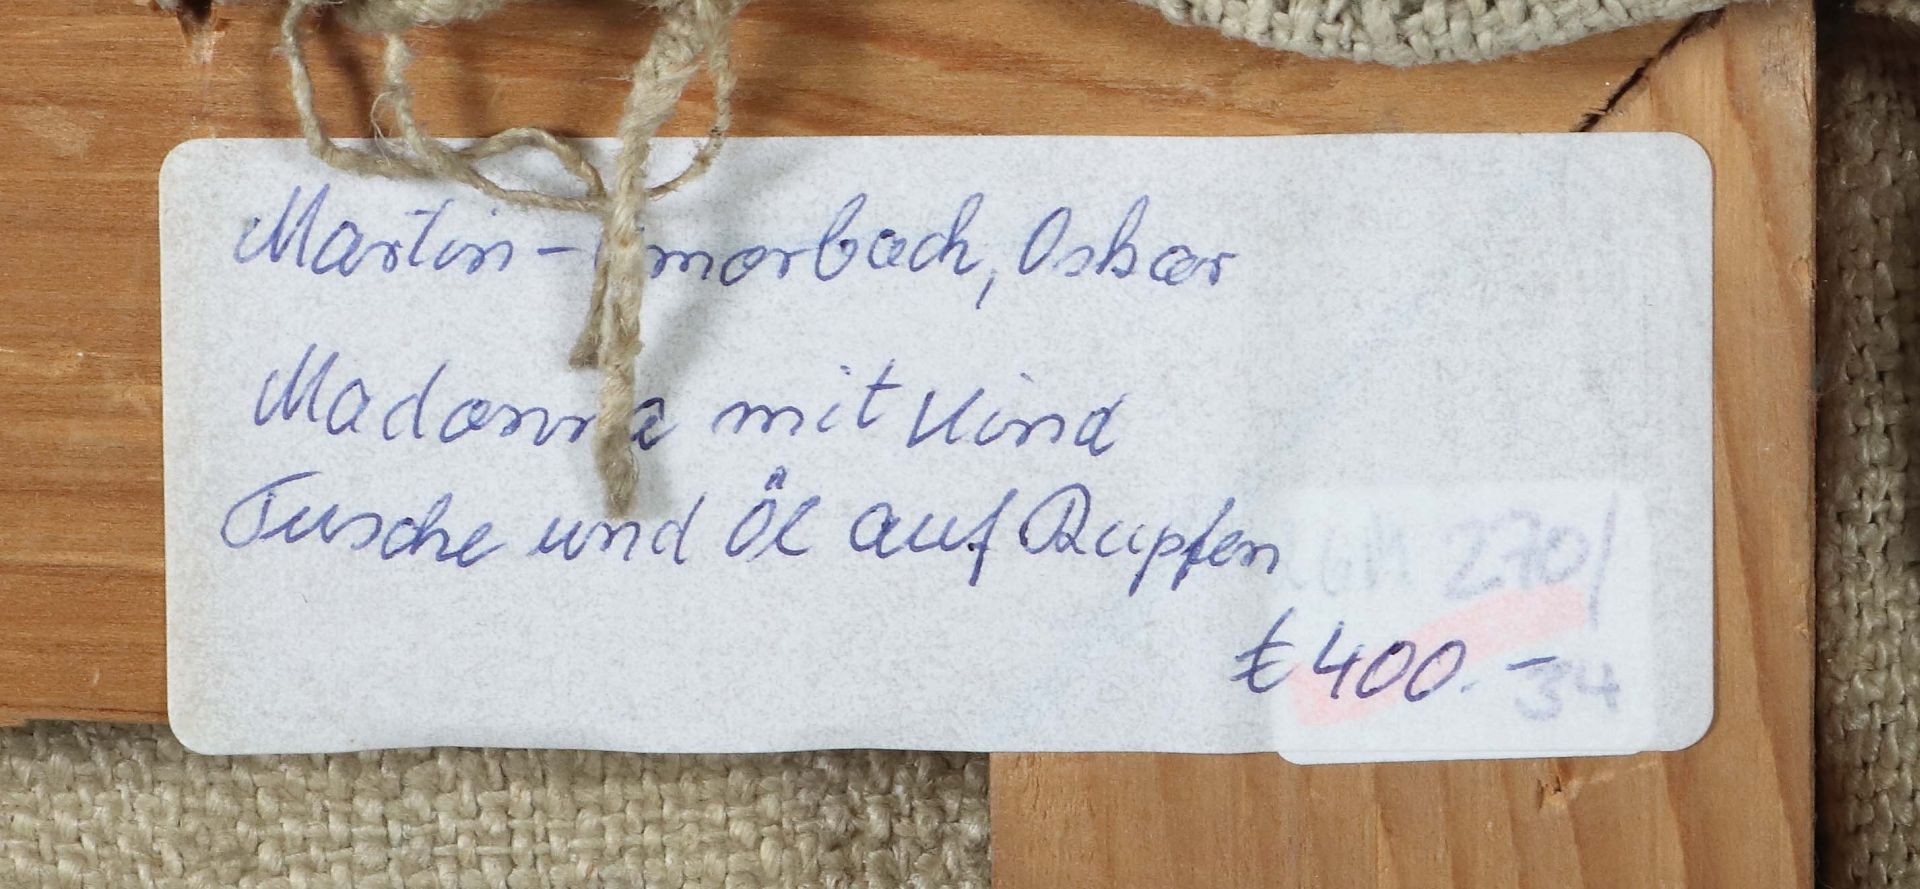 Martin-Amorbach, Oskar
Madonna mit Kind
Tusche und Öl auf Rupfen
270/
€ 400.-
34